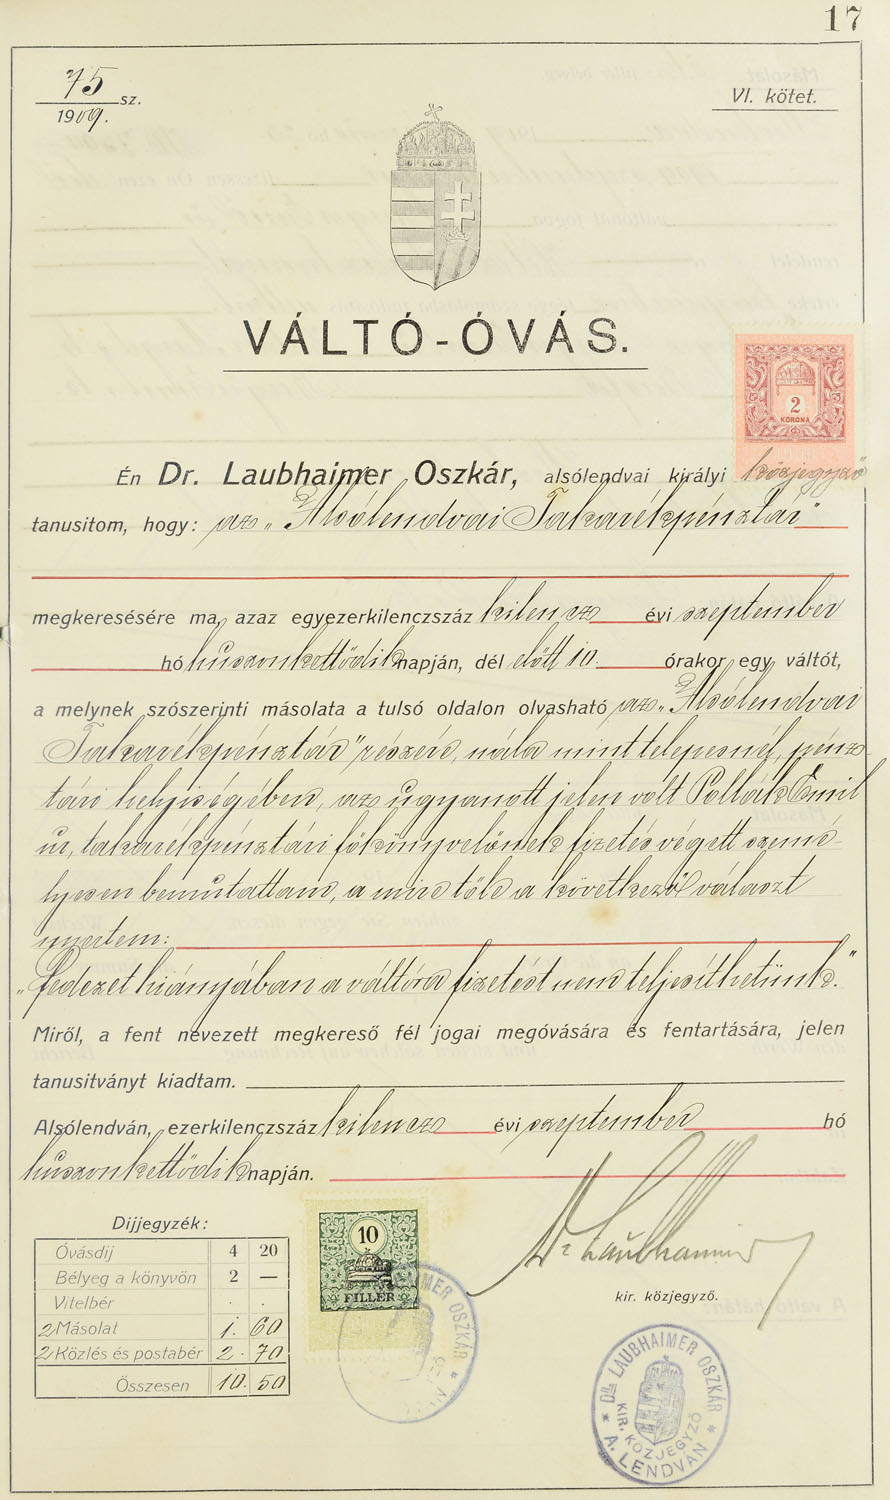 17
75 sz.
1909.
VI. kötet.
VÁLTÓ-ÓVÁS.
2
KORONA
Én Dr. Laubhaimer Oszkár, alsólendvai királyi közjegyző
tanusitom, hogy: az „Alsólendvai Takarékpénztár"
megkeresésére ma, azaz egyezerkilenczszáz kilencz évi szeptember
hó huszonkettődik napján, dél előtt 10. órakor egy váltót,
a melynek szószerinti másolata a tulsó oldalon olvasható az „Alsólendvai
Takarékpénztár" részére, nála mint telepesnél, pénz-
tári helyiségében, az ugyanott jelen volt Pollák Emil
ur, takarékpénztári főkönyvelőnek fizetés végett szemé-
lyesen bemutattam, a mire tőle a következő választ
nyertem:
„Fedezet hiányában a váltóra fizetést nem teljesíthetünk."
Miről, a fent nevezett megkereső fél jogai megóvására és fentartására, jelen
tanusitványt kiadtam.
Alsólendván, ezerkilenczszáz kilencz évi szeptember hó
huszonkettődik napján.
Dijjegyzék:
Óvásdij 4 20
Bélyeg a könyvön 2 —
Vitelbér . .
2 Másolat 1. 60
2 Közlés és postabér 2. 70
Összesen 10. 50
10
FILLER
Dr Laubhaimer
kir. közjegyző.
DR. LAUBHAIMER OSZKÁR
KIR. KÖZJEGYZŐ
* A. LENDVÁN *